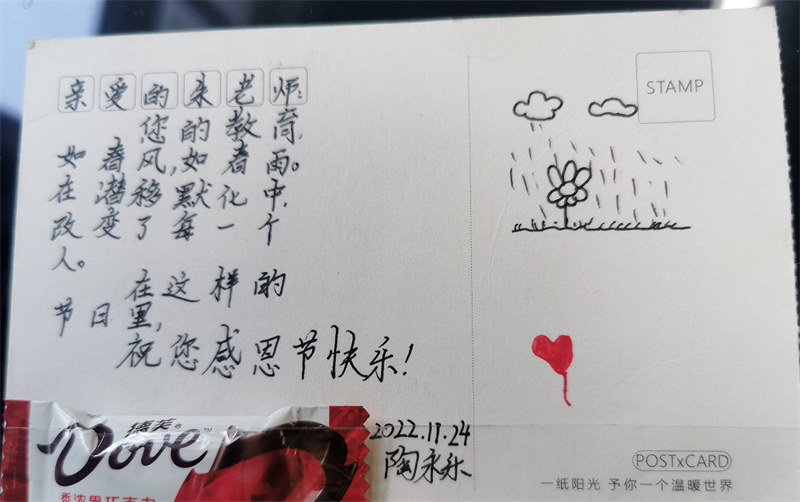 亲爱的朱老师:
您的教育,
如春风,如春雨。
在潜移默化中,
改变了每一个
人。
在这样的
节日里,
祝您感恩节快乐!
2022.11.24
陶永乐
德芙
Dove
香浓黑巧克力
STAMP
POSTxCARD
一纸阳光 予你一个温暖世界